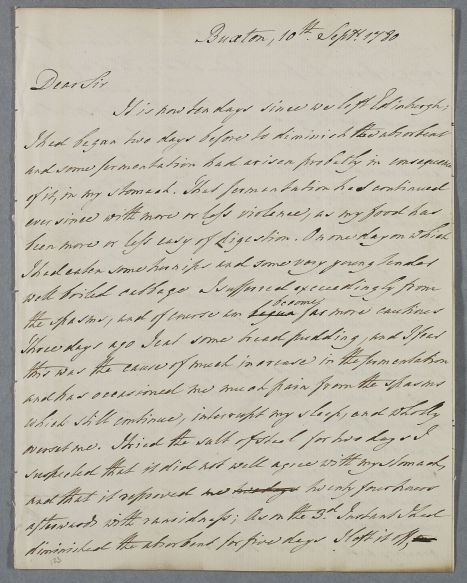 Buxton, 10th. Septr. 1780
Dear Sir
It is now ten days since we left Edinburgh;
I had begun two days before to diminish the absorbent
and some fermentation had arisen probably in consequence
of it, in my stomach. This fermentation has continued
ever since with more or less violence, as my food has
been more or less easy of digestion. On one day on which
I had eaten some turnips and some very young tender
well boiled cabbage I suffered exceedingly from
become
the spasms, and of course am begun far more cautious
Three days ago I eat some bread pudding, and I fear
this was the cause of much increase in the fermentation
and has occasioned me much pain from the spasms
which still continue, interrupt my sleep, and wholly
overset me. I tried the salt of steel for two days I
suspected that it did not well agree with my stomach,
and that it reproved me twenty four hours
afterwards with rancidness; As on the 3d. Instant I had
diminished the absorbent for five days I left it off,